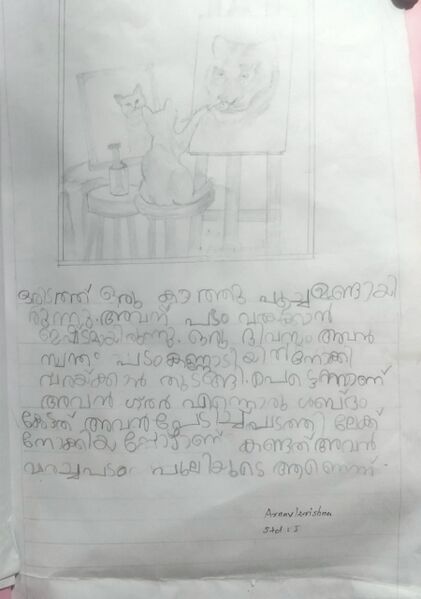 ഒരിടത്ത് ഒരു കാത്തു പൂച്ചഉണ്ടായി
രുന്നു. അവന് പടം വരയ്ക്കാൻ
ഇഷ്ടമായിരുന്നു. ഒരു ദിവസം അവൻ
സ്വന്തം പടം കണ്ണാടിയിൽ നോക്കി
വരയ്ക്കാൻ തുടങ്ങി. പെട്ടെന്നാണ്
അവൻ ഗർർ എന്നൊരു ശബ്ദം
കേട്ടത് അവൻ പ്പേടിച്ച് പടത്തി ലേക്ക്
നോക്കിയ പ്പോഴാണ് കണ്ടത് അവൻ
വരച്ചപടം പുലിയുടെ ആണെന്ന്.
Aranvkrishna
Std : I